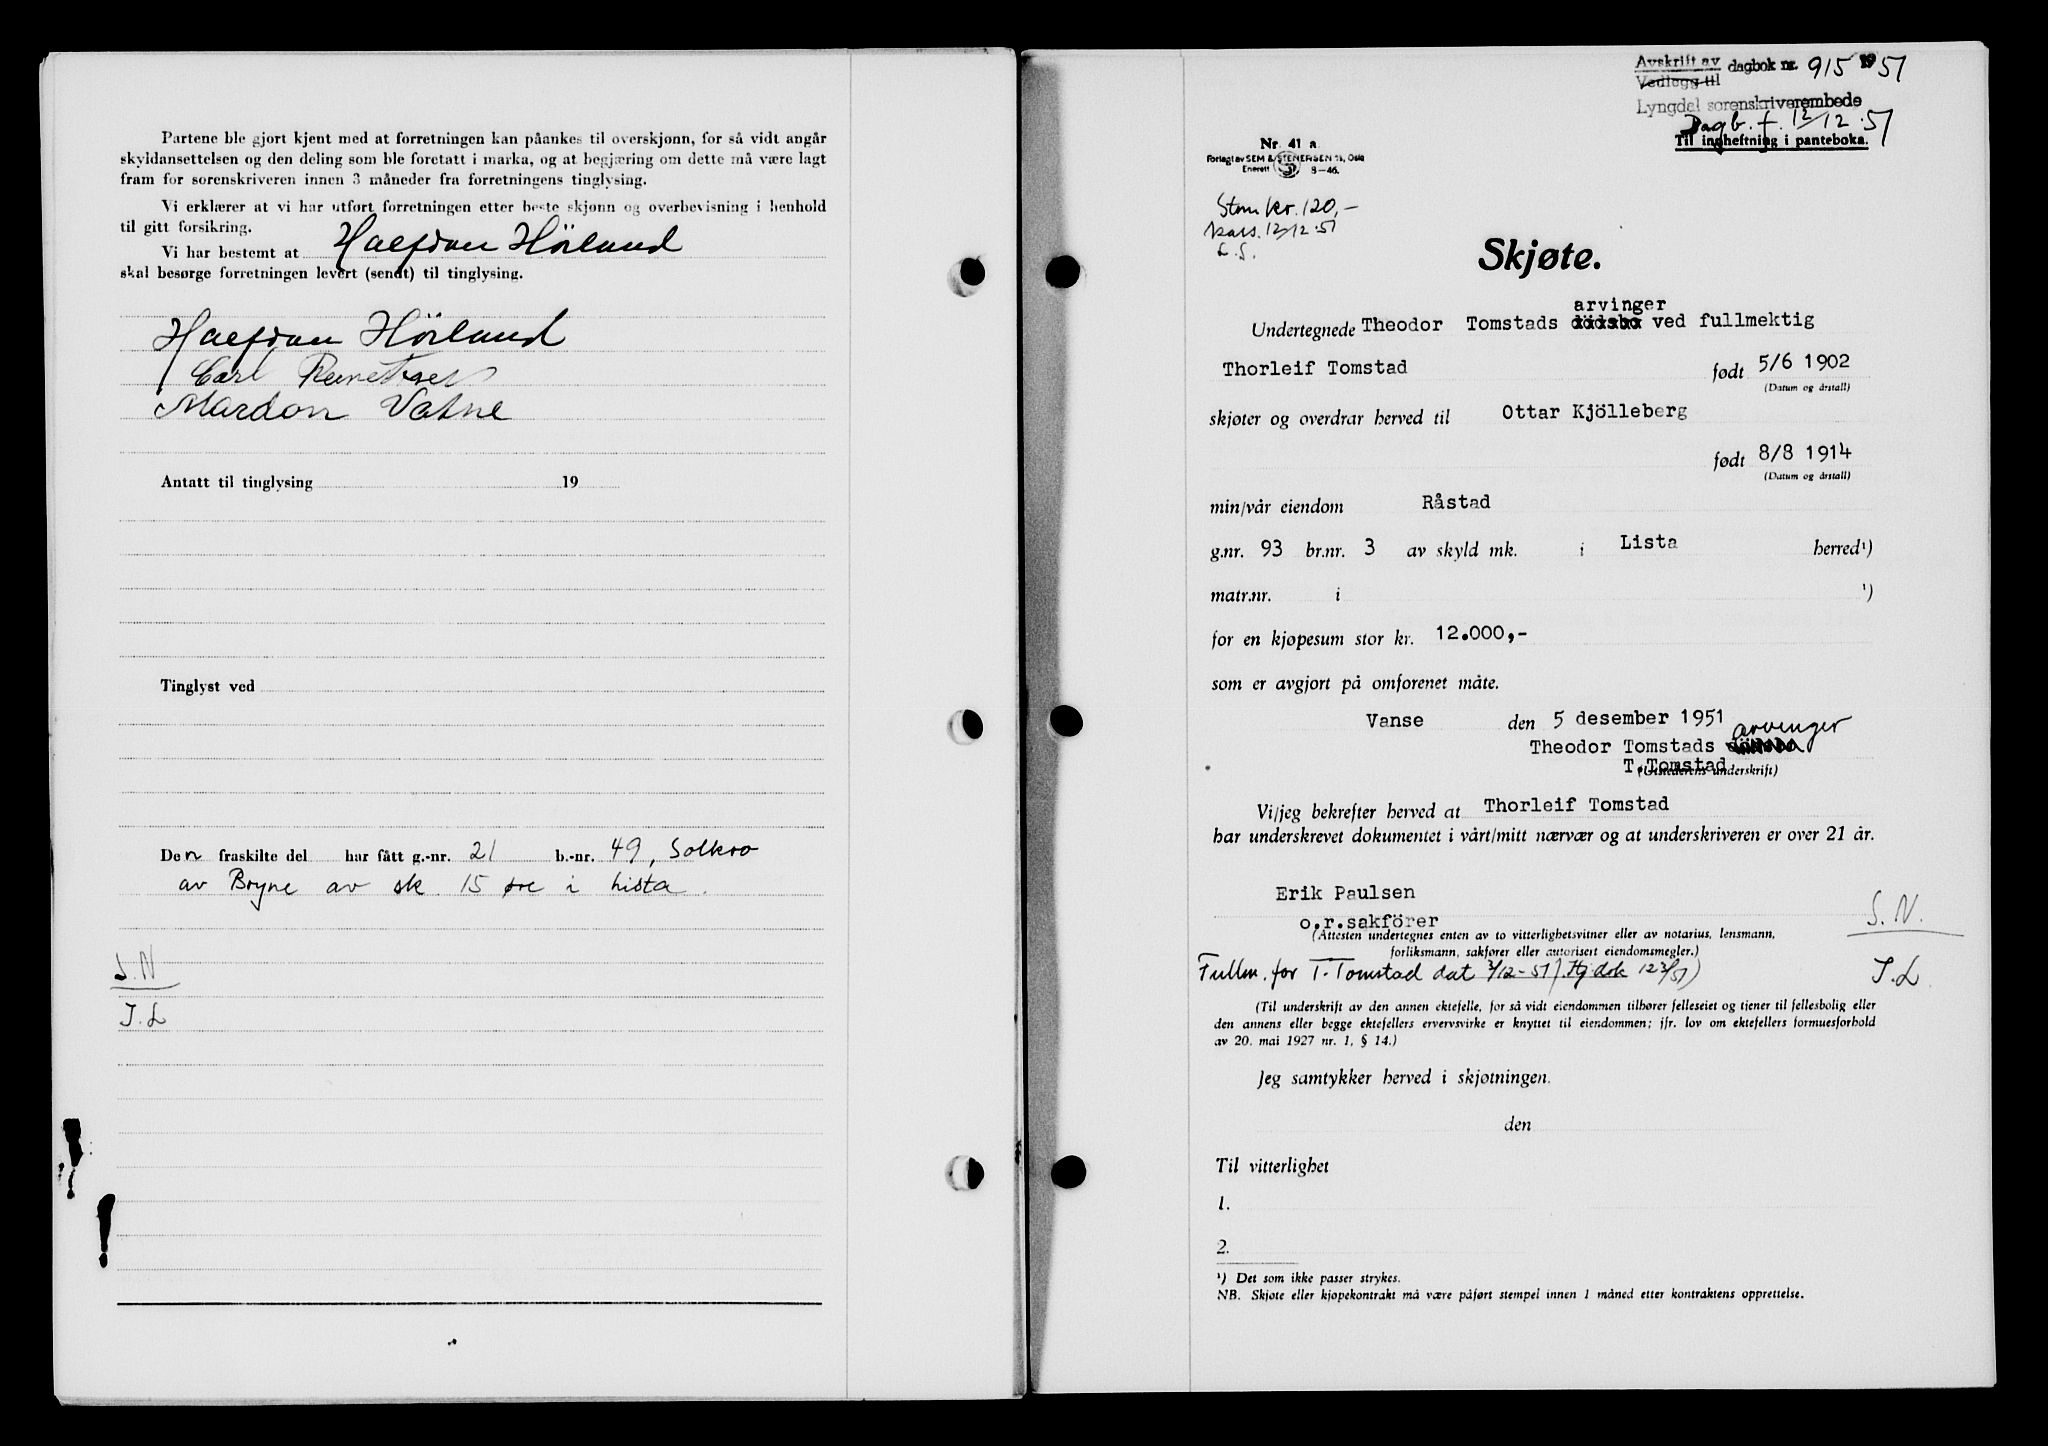 Partene ble gjort kjent med at forretningen kan påankes til overskjønn, for så vidt angår
skyldansettelsen og den deling som ble foretatt i marka, og at begjæring om dette må være lagt
fram for sorenskriveren innen 3 måneder fra forretningens tinglysing.
Vi erklærer at vi har utført forretningen etter beste skjønn og overbevisning i henhold
til gitt forsikring.
Vi har bestemt at Halfdan Hörlund
skal besørge forretningen levert (sendt) til tinglysing.
Halfdan Hörlund
Carl
Mardon Vatne
Antatt til tinglysing 19
Tinglyst ved
Den fraskilte del har fått g.-nr. 21 b.-nr. 49, Solkro
av Bryne av sk 15 øre i Lista.
S.N
J.L
Avskrift av dagbok nr. 915 1951
Vedlegg til
Lyngdal sorenskriverembede
Dagb. f. 12/12.51
Til innheftning i panteboka.
Nr. 41 a
Forlagt av SEM & STENERSEN A/s, Oslo
Enerett S 8—46.
Stem kr. 120,-
kass. 12/12.51
L.S.
Skjøte.
arvinger
Undertegnede Theodor Tomstads dödsbo ved fullmektig
Thorleif Tomstad født 5/6 1902
(Datum og årstall)
skjøter og overdrar herved til Ottar Kjölleberg
født 8/8 1914
(Datum og årstall)
min/vår eiendom Råstad
g.nr. 93 br.nr. 3 av skyld mk. i Lista herred¹)
matr.nr. i ¹)
for en kjøpesum stor kr. 12.000,-
som er avgjort på omforenet måte.
Vanse den 5 desember 1951
arvinger
Theodor Tomstads dödsbo
T.Tomstad
(Utstederens underskrift)
Vi/jeg bekrefter herved at Thorleif Tomstad
har underskrevet dokumentet i vårt/mitt nærvær og at underskriveren er over 21 år.
Erik Paulsen
o.r.sakförer
(Attesten undertegnes enten av to vitterlighetsvitner eller av notarius, lensmann,
forliksmann, sakfører eller autorisert eiendomsmegler.)
S.N.
Fullm. for T. Tomstad dat 3/12-51 (Hj.dok 123/51)
J.L
(Til underskrift av den annen ektefelle, for så vidt eiendommen tilhører felleseiet og tjener til fellesbolig eller
den annens eller begge ektefellers ervervsvirke er knyttet til eiendommen; jfr. lov om ektefellers formuesforhold
av 20. mai 1927 nr. 1, § 14.)
Jeg samtykker herved i skjøtningen.
den
Til vitterlighet
1.
2.
¹) Det som ikke passer strykes.
NB. Skjøte eller kjøpekontrakt må være påført stempel innen 1 måned etter kontraktens opprettelse.